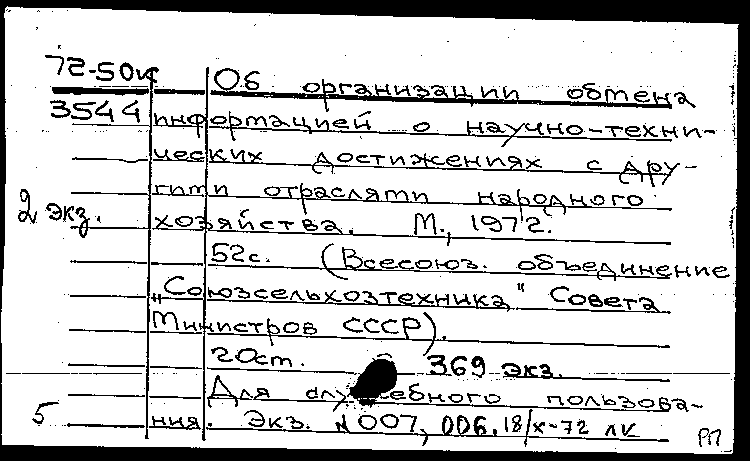 72-50к Об организации обмена
3544 информацией о научно-техни-
ческих достижениях с дру-
гими отраслями народного
2 экз. хозяйства. М., 1972.
52с. (Всесоюз. объединение
"Союзсельхозтехника" Совета
Министров СССР).
20ст. 369 экз.
Для служебного пользова-
5 ния. Экз. N 007, 006. 18/X-72 ЛК
РП